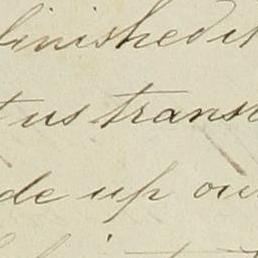 finished it
us trans
de up our